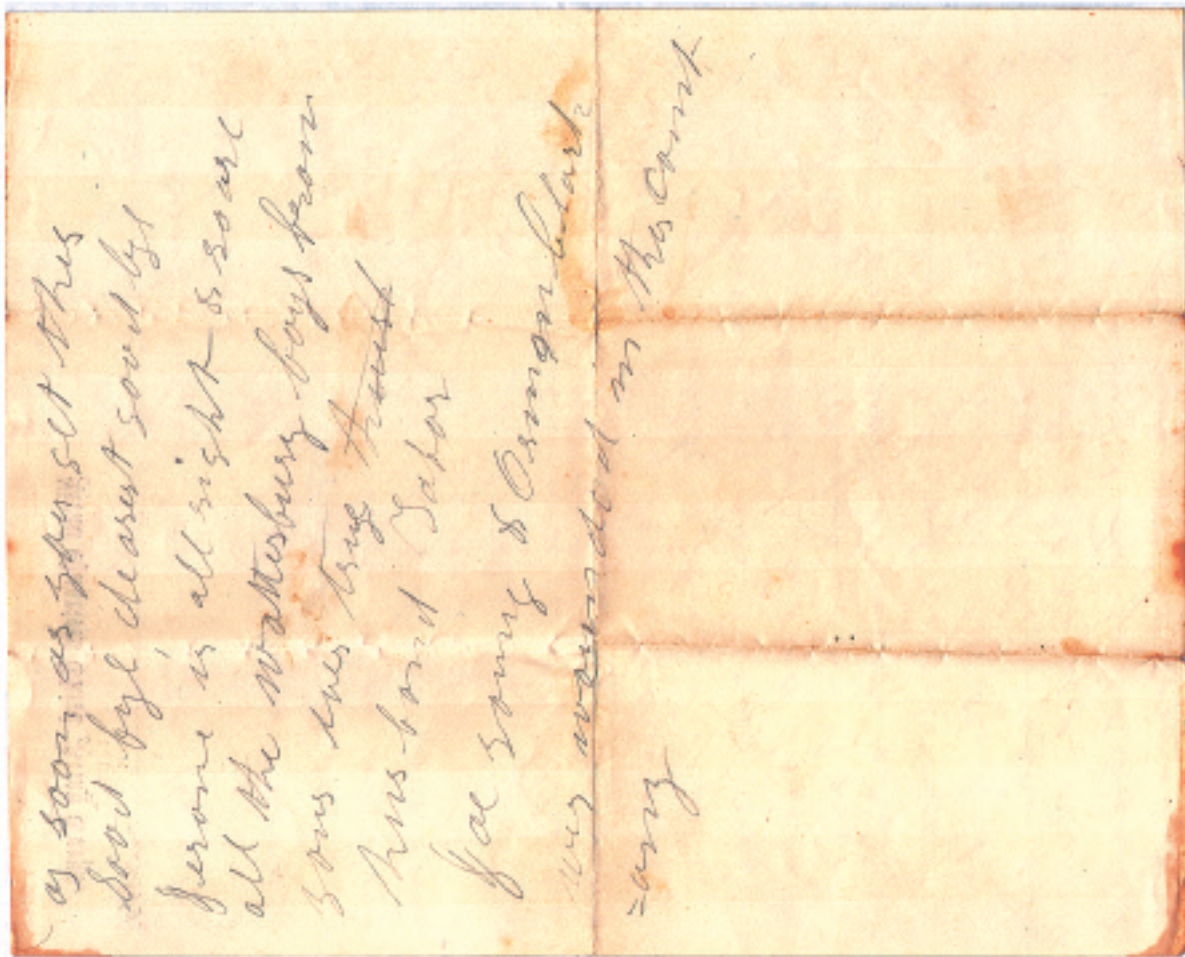 as soon as you get this
Good bye dearest good by
Jerome is all right & so are
all the Wattsburg boys from
your ever true
husband Tabor
Joe young & Orange Clark
wer wounded in this comt
=any